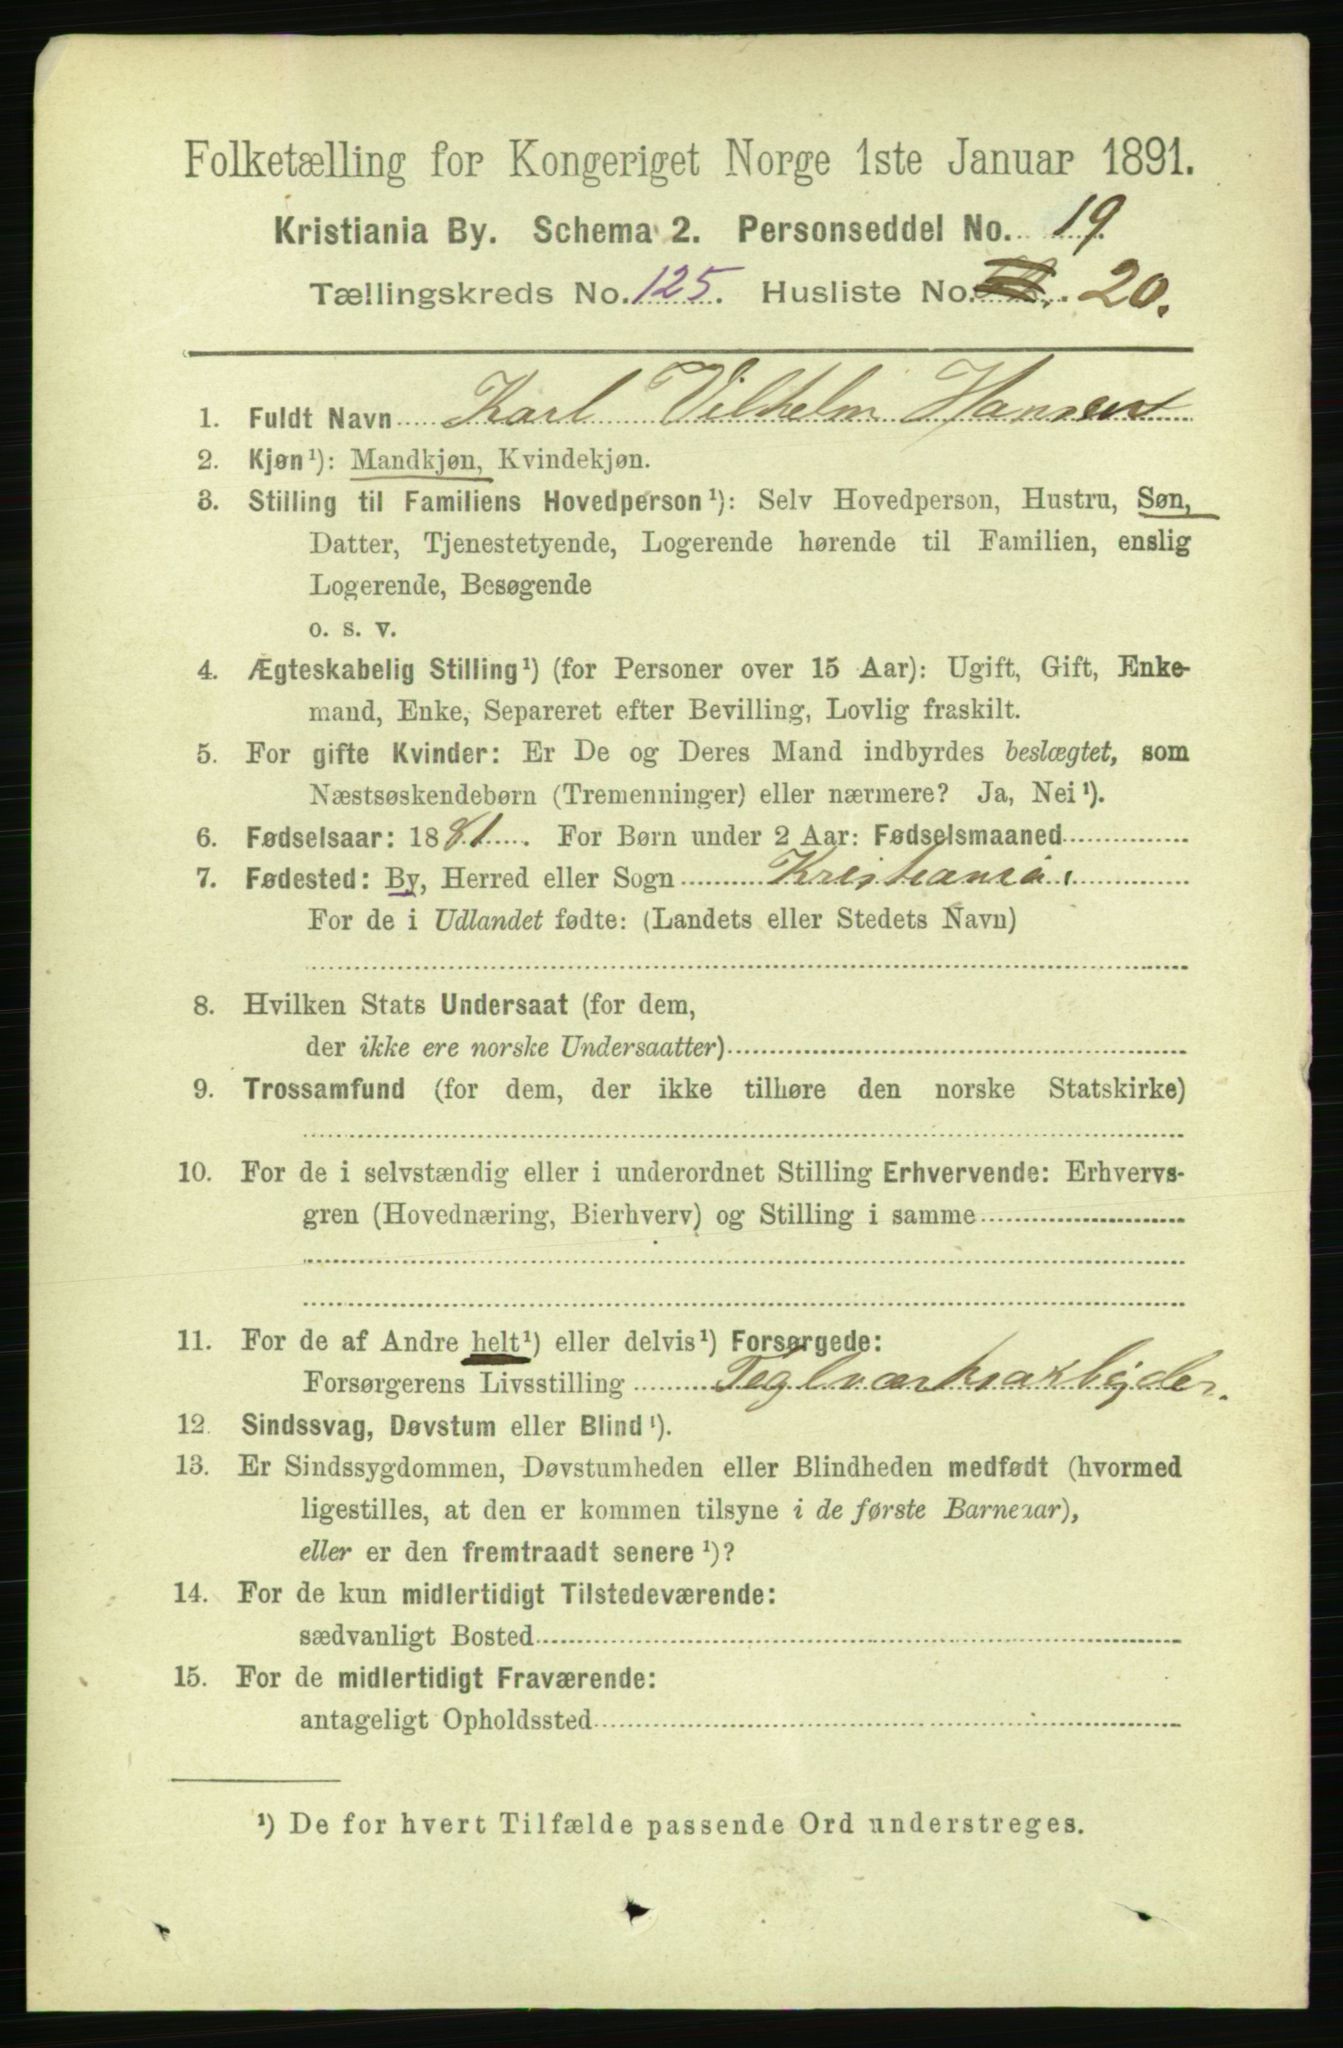 Folketælling for Kongeriget Norge 1ste Januar 1891.
Kristiania By. Schema 2. Personseddel No. 19.
Tællingskreds No. 125. Husliste No. 20.
1. Fuldt Navn Karl Vilhelm Hansen
2. Kjøn¹): Mandkjøn, Kvindekjøn.
3. Stilling til Familiens Hovedperson¹): Selv Hovedperson, Hustru, Søn,
Datter, Tjenestetyende, Logerende hørende til Familien, enslig
Logerende, Besøgende
o. s. v.
4. Ægteskabelig Stilling¹) (for Personer over 15 Aar): Ugift, Gift, Enke-
mand, Enke, Separeret efter Bevilling, Lovlig fraskilt.
5. For gifte Kvinder: Er De og Deres Mand indbyrdes beslægtet, som
Næstsøskendebørn (Tremenninger) eller nærmere? Ja, Nei¹).
6. Fødselsaar: 1881. For Børn under 2 Aar: Fødselsmaaned
7. Fødested: By, Herred eller Sogn Kristiania,
For de i Udlandet fødte: (Landets eller Stedets Navn)
8. Hvilken Stats Undersaat (for dem,
der ikke ere norske Undersaatter)
9. Trossamfund (for dem, der ikke tilhøre den norske Statskirke)
10. For de i selvstændig eller i underordnet Stilling Erhvervende: Erhvervs-
gren (Hovednæring, Bierhverv) og Stilling i samme
11. For de af Andre helt¹) eller delvis¹) Forsørgede:
Forsørgerens Livsstilling Teglværksarbejder.
12. Sindssvag, Døvstum eller Blind¹).
13. Er Sindssygdommen, Døvstumheden eller Blindheden medfødt (hvormed
ligestilles, at den er kommen tilsyne i de første Barneaar),
eller er den fremtraadt senere¹)?
14. For de kun midlertidigt Tilstedeværende:
sædvanligt Bosted
15. For de midlertidigt Fraværende:
antageligt Opholdssted
¹) De for hvert Tilfælde passende Ord understreges.